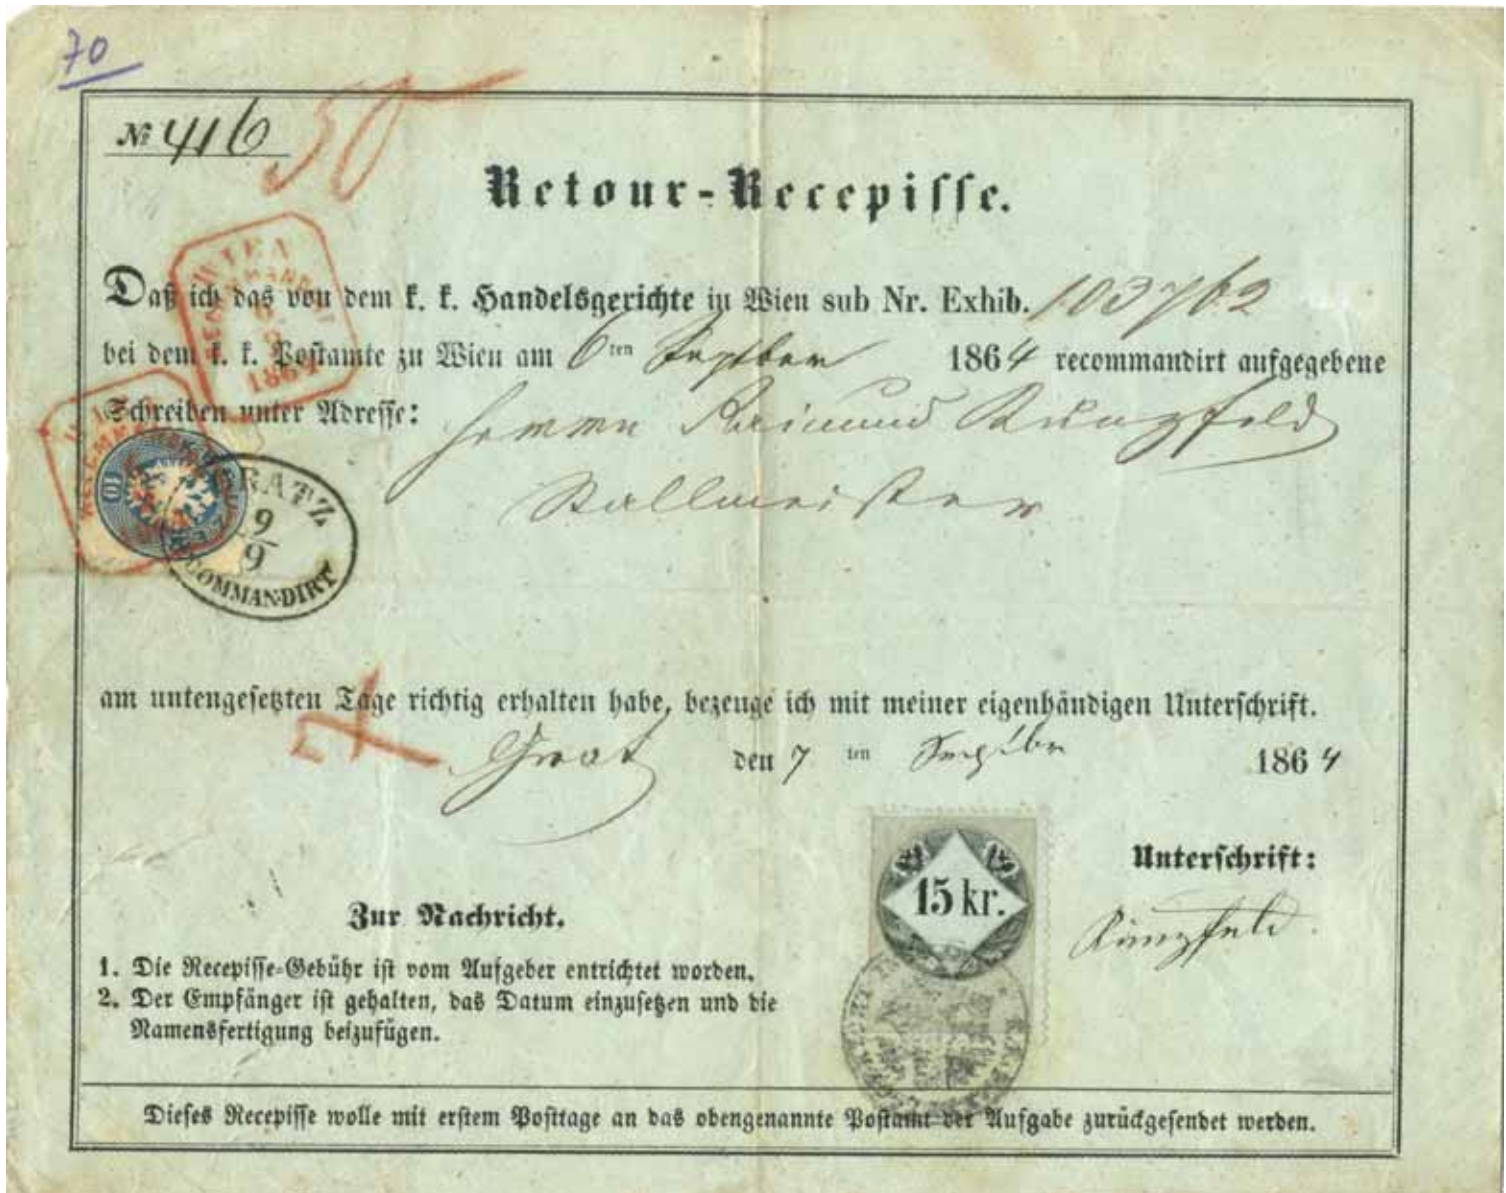 70
№ 416
50
Retour-Recepisse.
Daß ich das von dem k. k. Handelsgerichte in Wien sub Nr. Exhib. 103762
bei dem k. k. Postamte zu Wien am 6ten September 1864 recommandirt aufgegebene
Schreiben unter Adresse: Herrn Raimund Künzfeld
Stallmeister
WIEN
1864
10
GRATZ
9
9
RECOMMANDIRT
am untengesetzten Tage richtig erhalten habe, bezeuge ich mit meiner eigenhändigen Unterschrift.
Gratz den 7 ten Septbr 1864
15 kr.
Unterschrift:
Künzfeld
Zur Nachricht.
1. Die Recepisse-Gebühr ist vom Aufgeber entrichtet worden.
2. Der Empfänger ist gehalten, das Datum einzusetzen und die
Namensfertigung beizufügen.
Dieses Recepisse wolle mit erstem Posttage an das obengenannte Postamt der Aufgabe zurückgesendet werden.